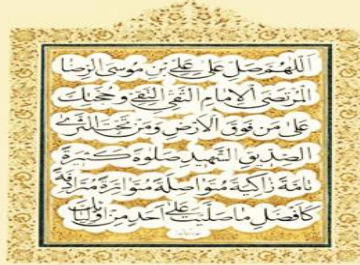 اَللّهُمَّ صَلِّ عَلى عَلِيِّ بْنِ مُوسَى الرِّضَا
الْمُرْتَضَى الْاِمامِ التَّقِيِّ النَّقِيِّ وَ حُجَّتِكَ
عَلى مَنْ فَوْقَ الْاَرْضِ وَ مَنْ تَحْتَ الثَّرى
الصِّدّيقِ الشَّهيدِ صَلوةً كَثيرَةً
تامَّةً زاكِيَةً مُتَواصِلَةً مُتَواتِرَةً مُتَرادِفَةً
كَاَفْضَلِ ما صَلَّيْتَ عَلى اَحَدٍ مِنْ اَوْلِيائِكَ